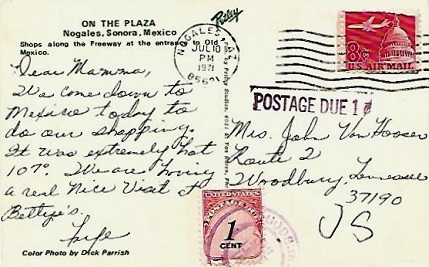 ON THE PLAZA
Nogales, Sonora, Mexico
Shops along the Freeway at the entrance to Old
Mexico.
Dear Mamma,
We come down to
Mexico today to
do our shopping.
It was extremely hot
107°. We are having
a real nice visit at
Bettye's.
Color Photo by Dick Parrish
Petley
NOGALES
JUL 10
PM
1971
8¢
U.S. AIR MAIL
POSTAGE DUE 1¢
Mrs. John Van Hooser
Route 2
Woodbury, Tennessee
37190
US
UNITED STATES
POSTAGE DUE
1
CENT